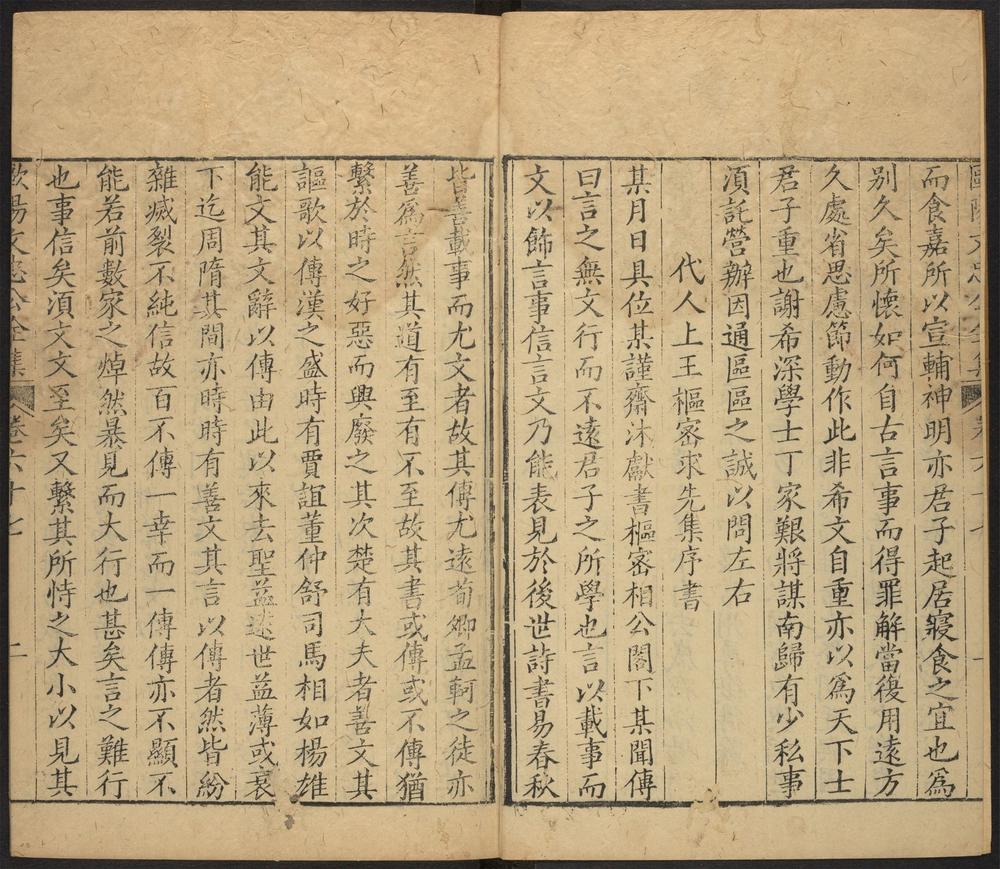 而食嘉所以宣輔神明亦君子起居寢食之宜也爲
别久矣所懷如何自古言事而得罪解當復用遠方
久處省思慮節動作此非希文自重亦以爲天下士
君子重也謝希深學士丁家艱將謀南歸有少私事
湏託營辦因通區區之誠以問左右
代人上王樞密求先集序書
某月日具位某謹齋沐獻書樞密相公閤下某聞傳
曰言之無文行而不遠君子之所學也言以載事而
文以飾言事信言文乃能表見於後世詩書易春秋
皆善載事而尤文者故其傳尤遠荀卿孟軻之徒亦
善爲言然其道有至有不至故其書或傳或不傳猶
繫於時之好惡而興廢之其次楚有大夫者善文其
謳歌以傳漢之盛時有賈誼董仲舒司馬相如楊雄
能文其文辭以傳由此以來去聖益遠世益薄或衰
下迄周隋其間亦時時有善文其言以傳者然皆紛
雜滅裂不純信故百不傳一幸而一傳傳亦不顯不
能若前數家之焯然暴見而大行也甚矣言之難行
也事信矣湏文文至矣又繫其所恃之大小以見其
歐陽文忠公全集 卷六十七 二